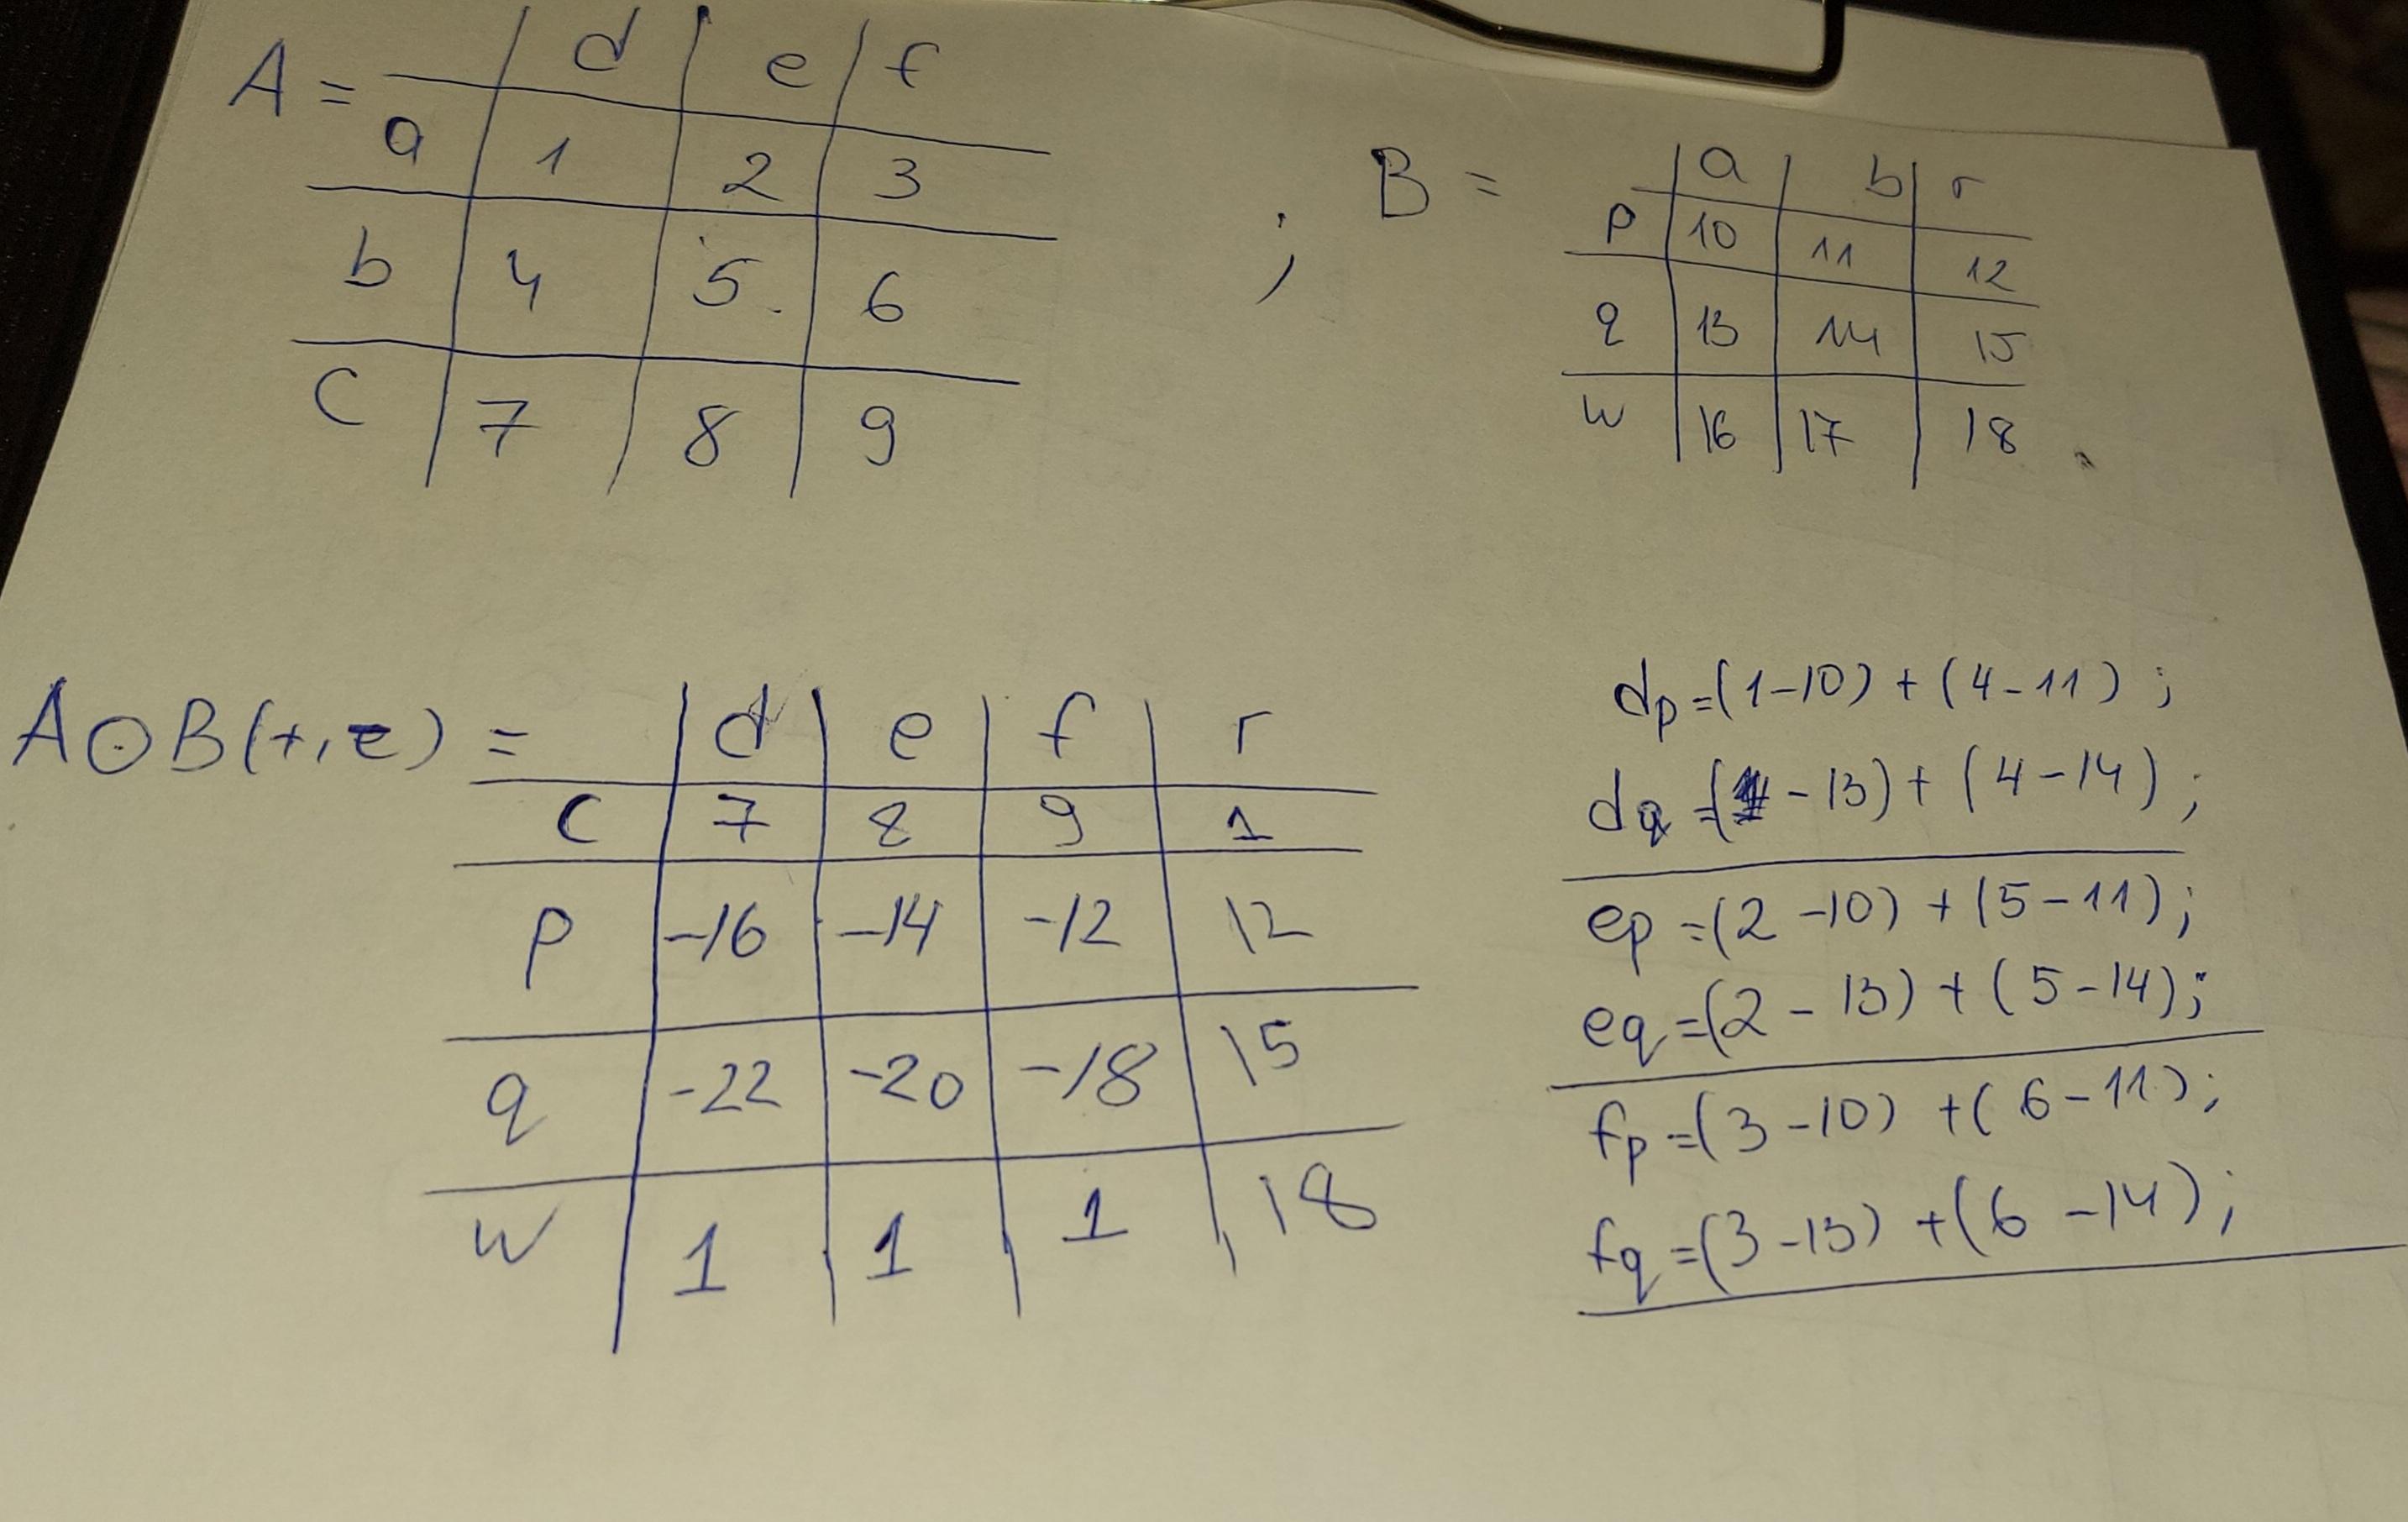 A = d e f
a 1 2 3
b 4 5 6
c 7 8 9
; B = a b r
p 10 11 12
q 13 14 15
w 16 17 18
A⊙B(+,-) = d e f r
c 7 8 9 1
p -16 -14 -12 12
q -22 -20 -18 15
w 1 1 1 18
dp=(1-10)+(4-11);
dq=(1-13)+(4-14);
ep=(2-10)+(5-11);
eq=(2-13)+(5-14);
fp=(3-10)+(6-11);
fq=(3-13)+(6-14);